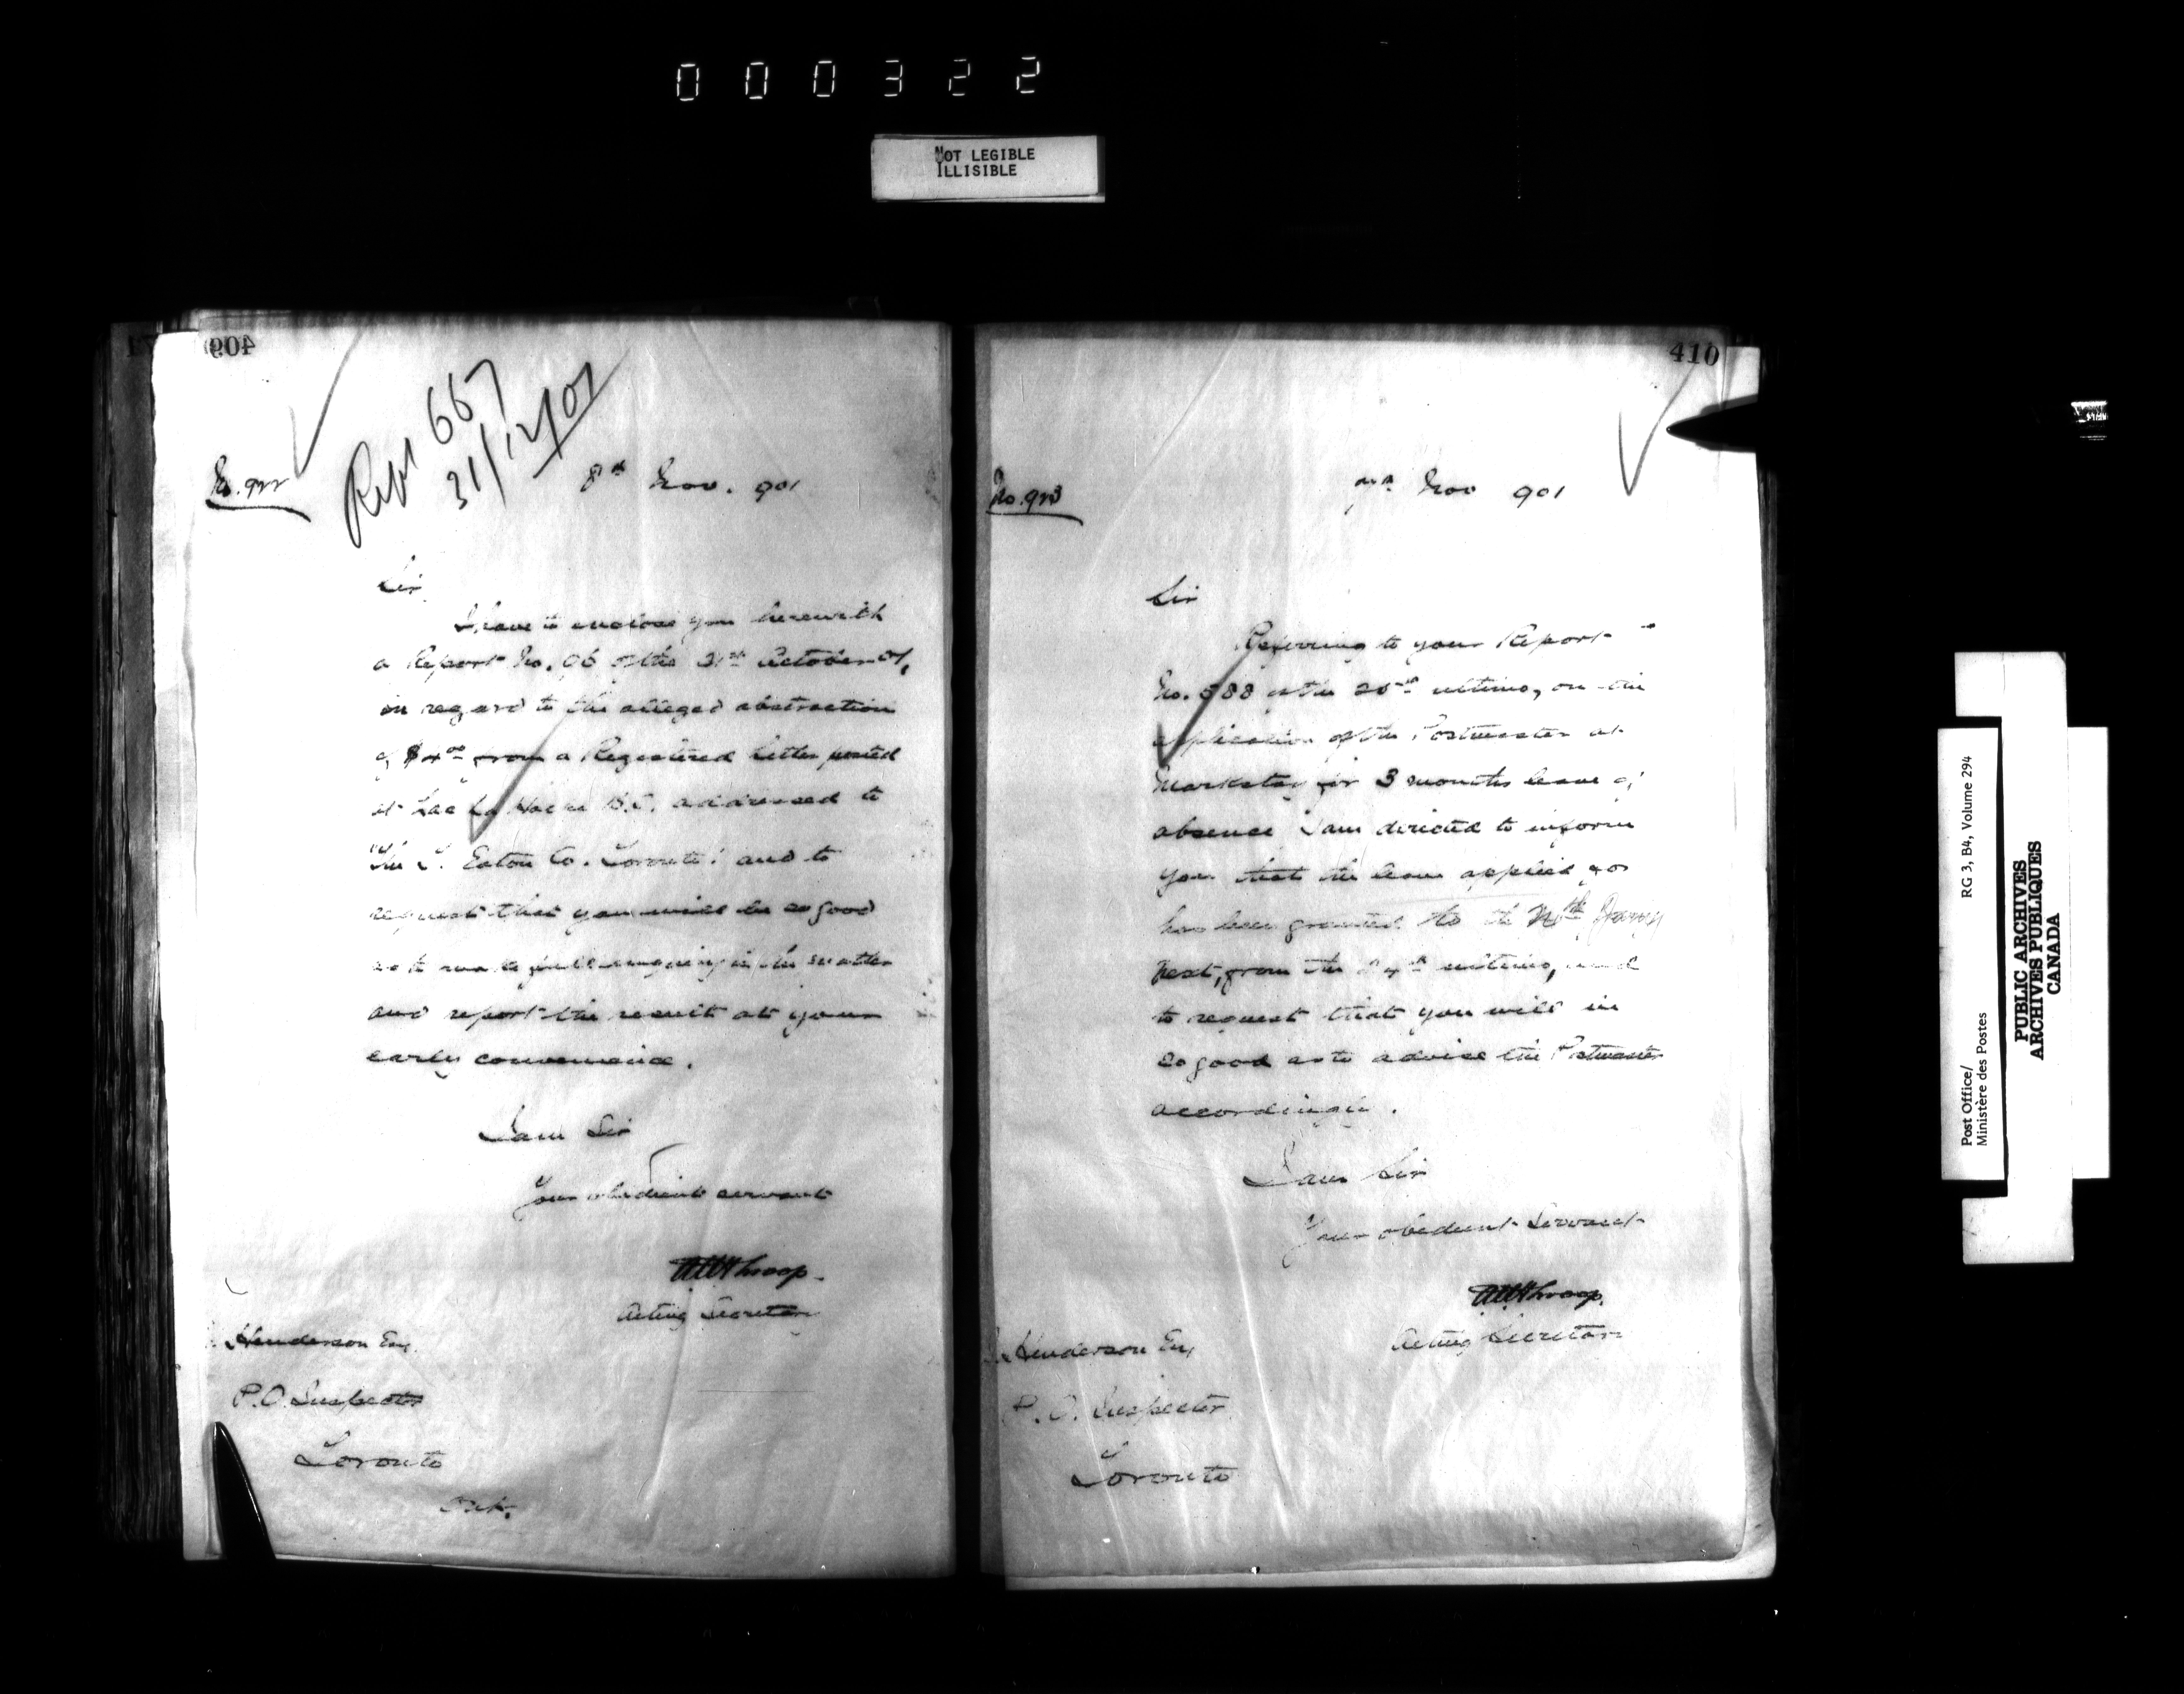 000322
NOT LEGIBLE
ILLISIBLE
409
Rept 667
31/12/01
No. 922
8th Nov. 901
Sir
I have to enclose you herewith
a Report No. 96 of the 31st October 01,
in regard to the alleged abstraction
of $4.00 from a Registered letter posted
at Lac La Hache B.C. addressed to
"The T. Eaton Co. Toronto: and to
request that you will be so good
as to make full enquiry in the matter
and report the result at your
early convenience.
I am Sir
Your obedient servant
Throop.
Acting Secretary
Henderson Esq
P.O. Inspector
Toronto
Ont.
410
No. 923
Nov 901
Sir
Referring to your Report
No. 588 of the ultimo, on the
application of the Postmaster at
Markstay for 3 months leave of
absence I am directed to inform
you that the leave applied for
has been granted to the
next, from the 24th ultimo, and
to request that you will be
so good as to advise the Postmaster
accordingly.
I am Sir
Your obedient Servant
Throop.
Acting Secretary
Henderson Esq
P.O. Inspector
Toronto
Post Office/
Ministère des Postes
RG 3, B4, Volume 294
PUBLIC ARCHIVES
ARCHIVES PUBLIQUES
CANADA